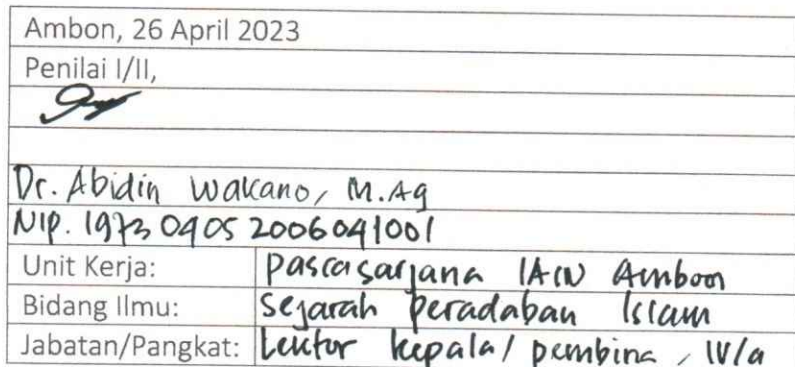 Ambon, 26 April 2023
Penilai I/II,
Dr. Abidin Wakano, M.Ag
NIP. 19730405 2006041001
Unit Kerja: Pascasarjana IAIN Ambon
Bidang Ilmu: Sejarah Peradaban Islam
Jabatan/Pangkat: Lektor kepala/ pembina, IV/a